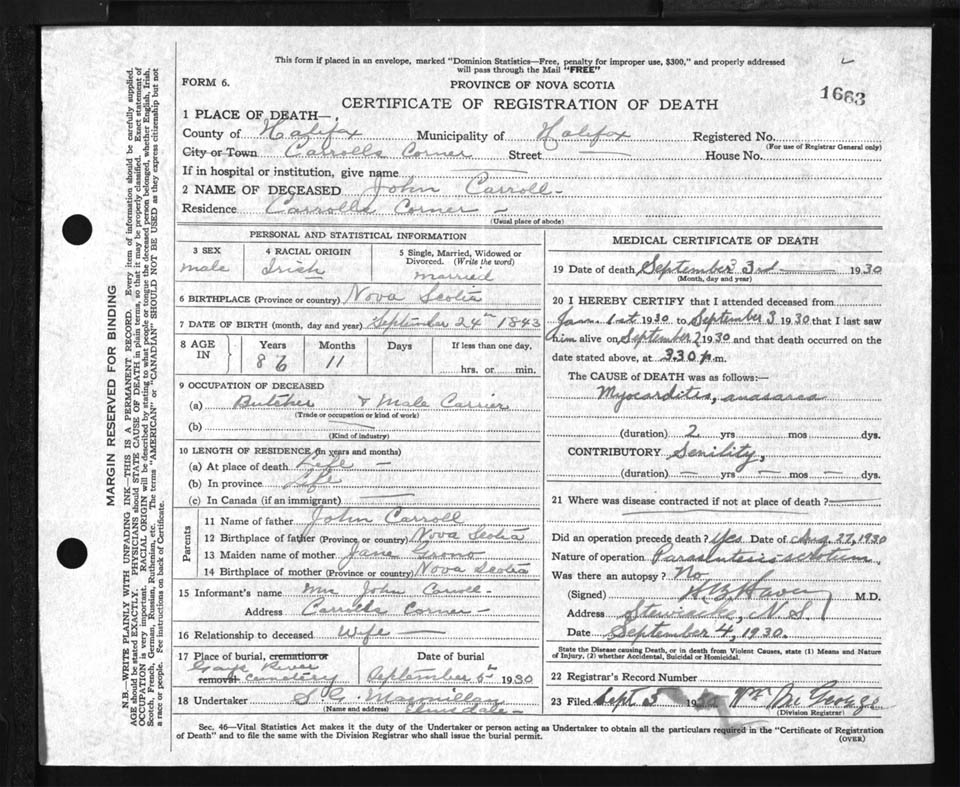 This form if placed in an envelope, marked "Dominion Statistics—Free, penalty for improper use, $300," and properly addressed
will pass through the Mail "FREE"
FORM 6.
PROVINCE OF NOVA SCOTIA
1663
CERTIFICATE OF REGISTRATION OF DEATH
1 PLACE OF DEATH—
County of Halifax Municipality of Halifax Registered No.
(For use of Registrar General only)
City or Town Carrolls Corner Street — House No.
If in hospital or institution, give name —
2 NAME OF DECEASED John Carroll—
Residence Carrolls Corner—
(Usual place of abode)
PERSONAL AND STATISTICAL INFORMATION
3 SEX 4 RACIAL ORIGIN 5 Single, Married, Widowed or
Divorced. (Write the word)
Male Irish Married
6 BIRTHPLACE (Province or country) Nova Scotia
7 DATE OF BIRTH (month, day and year) September 24th 1843
8 AGE IN Years Months Days If less than one day.
86 11
hrs. or min.
9 OCCUPATION OF DECEASED
(a) Butcher & Male Carrier
(Trade or occupation or kind of work)
(b)
(Kind of industry)
10 LENGTH OF RESIDENCE (in years and months)
(a) At place of death Life —
(b) In province Life
(c) In Canada (if an immigrant) —
Parents
11 Name of father John Carroll
12 Birthplace of father (Province or country) Nova Scotia
13 Maiden name of mother Jane
14 Birthplace of mother (Province or country) Nova Scotia
15 Informant's name Mrs John Carroll—
Address Carrolls Corner—
16 Relationship to deceased Wife —
17 Place of burial, cremation or Date of burial
removal Gays River
Cemetery September 5th 1930
18 Undertaker Macmillan
(Name and address)
MEDICAL CERTIFICATE OF DEATH
19 Date of death September 3rd — 1930
(Month, day and year)
20 I HEREBY CERTIFY that I attended deceased from
Jan. 1st 1930 to September 3 1930 that I last saw
him alive on September 1930 and that death occurred on the
date stated above, at 3.30 p.m.
The CAUSE of DEATH was as follows:—
Myocarditis, anasarca
(duration) 2 yrs mos dys.
CONTRIBUTORY Senility,
(duration) — yrs — mos — dys.
21 Where was disease contracted if not at place of death? —
Did an operation precede death? Yes Date of Aug. 27, 1930
Nature of operation Paracentesis scrotum
Was there an autopsy? No
(Signed) M.D.
Address Stewiacke, N.S.
Date September 4, 1930.
State the Disease causing Death, or in death from Violent Causes, state (1) Means and Nature
of Injury, (2) whether Accidental, Suicidal or Homicidal.
22 Registrar's Record Number
23 Filed Sept 5 19 Wm McGeorge
(Division Registrar)
Sec. 46—Vital Statistics Act makes it the duty of the Undertaker or person acting as Undertaker to obtain all the particulars required in the "Certificate of Registration
of Death" and to file the same with the Division Registrar who shall issue the burial permit.
(OVER)
MARGIN RESERVED FOR BINDING
N.B.—WRITE PLAINLY WITH UNFADING INK—THIS IS A PERMANENT RECORD. Every item of information should be carefully supplied.
AGE should be stated EXACTLY. PHYSICIANS should STATE CAUSE OF DEATH in plain terms, so that it may be properly classified. Exact statement of
OCCUPATION is very important. RACIAL ORIGIN will be described by stating to what people or tongue the deceased person belonged, whether English, Irish,
Scotch, French, German, Russian, Ruthenian, etc. The terms "AMERICAN" or "CANADIAN" SHOULD NOT BE USED as they express citizenship but not
a race or people. See instructions on back of Certificate.